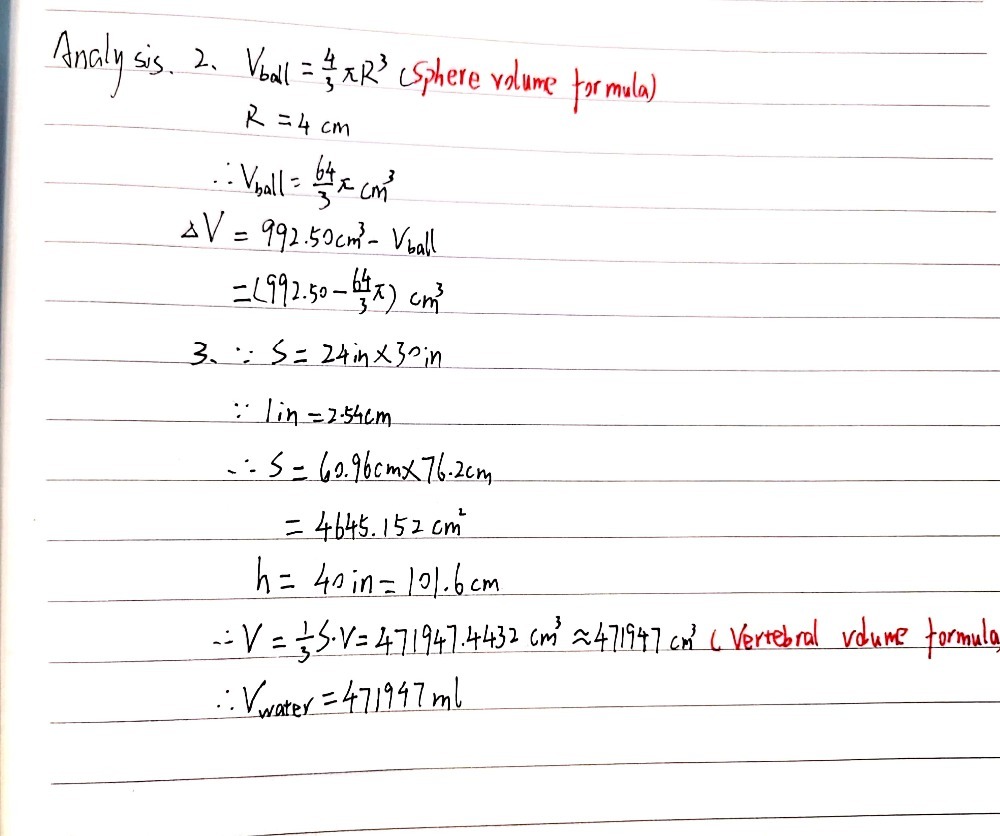 Analysis. 2. V_ball = 4/3 πR³ (Sphere volume formula)
R = 4 cm
∴ V_ball = 64/3 π cm³
ΔV = 992.50cm³ - V_ball
= (992.50 - 64/3 π) cm³
3. ∵ S = 24in × 30in
∵ 1in = 2.54cm
∴ S = 60.96cm × 76.2cm
= 4645.152 cm²
h = 40in = 101.6cm
∴ V = 1/3 S·V = 471947.4432 cm³ ≈ 471947 cm³ (Vertebral volume formula
∴ V_water = 471947 ml